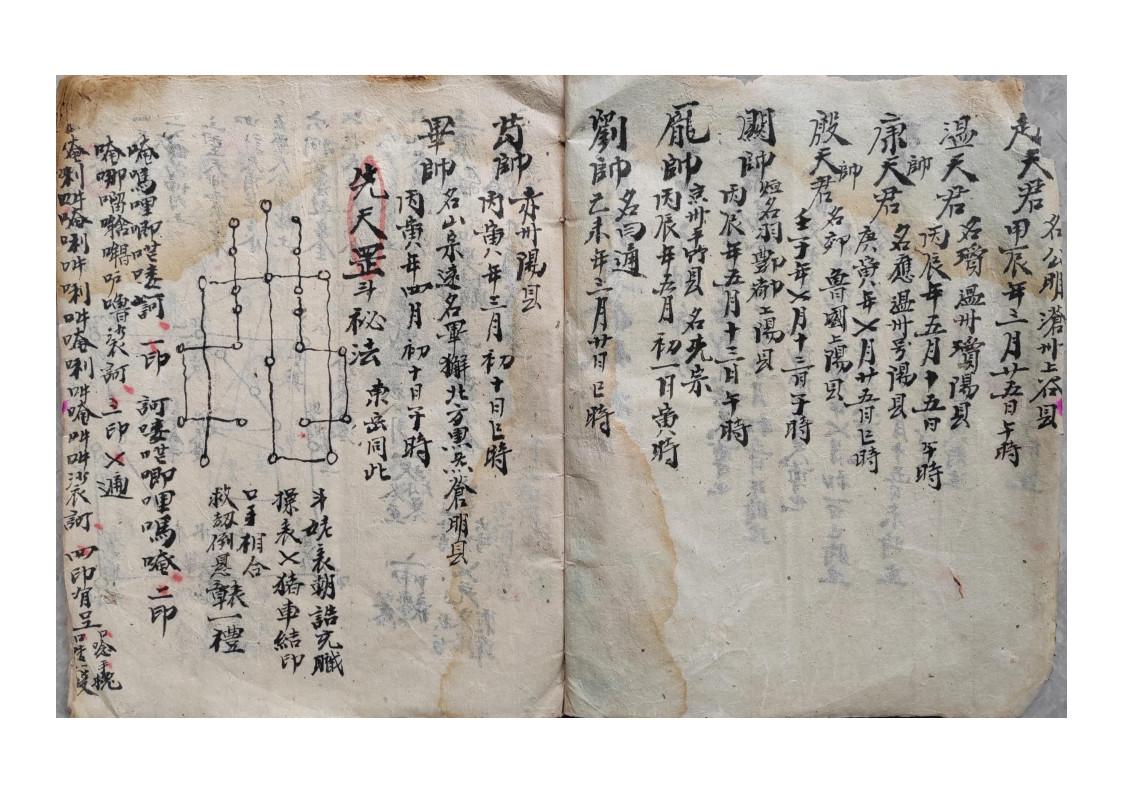 名公明滄州上谷县
天君甲辰年三月廿五日午時
溫天君帥名瓊溫州瓊陽县
丙辰年五月十五日午時
康天君帥名應溫州号陽县
庚寅年七月廿五日巳時
殷天君帥名郊魯國上陽县
壬子年七月十三日子時
關帥姓名羽酆都上陽县
丙辰年五月十三日午時
龐帥京州平竹县名光宗
丙辰年五月初一日寅時
劉帥名 通
乙未年三月廿日巳時
苟帥赤州陽县
丙寅年三月初十日巳時
畢帥名山宗遠名軍獬北方 蒼明县
丙寅年四月初十日子時
先天罡斗秘法東岳同此
斗姥表朝誥充職
操表乂猪車結印
口手相合
救劫倒懸章表一禮
唵嗎哩唧吽 訶一印 訶 吽唧哩嗎唵二印
唵哪 嚕娑訶三印乂通
唵唎吽唵唎吽唎吽唵唎吽唵吽吽娑訶四印有呈